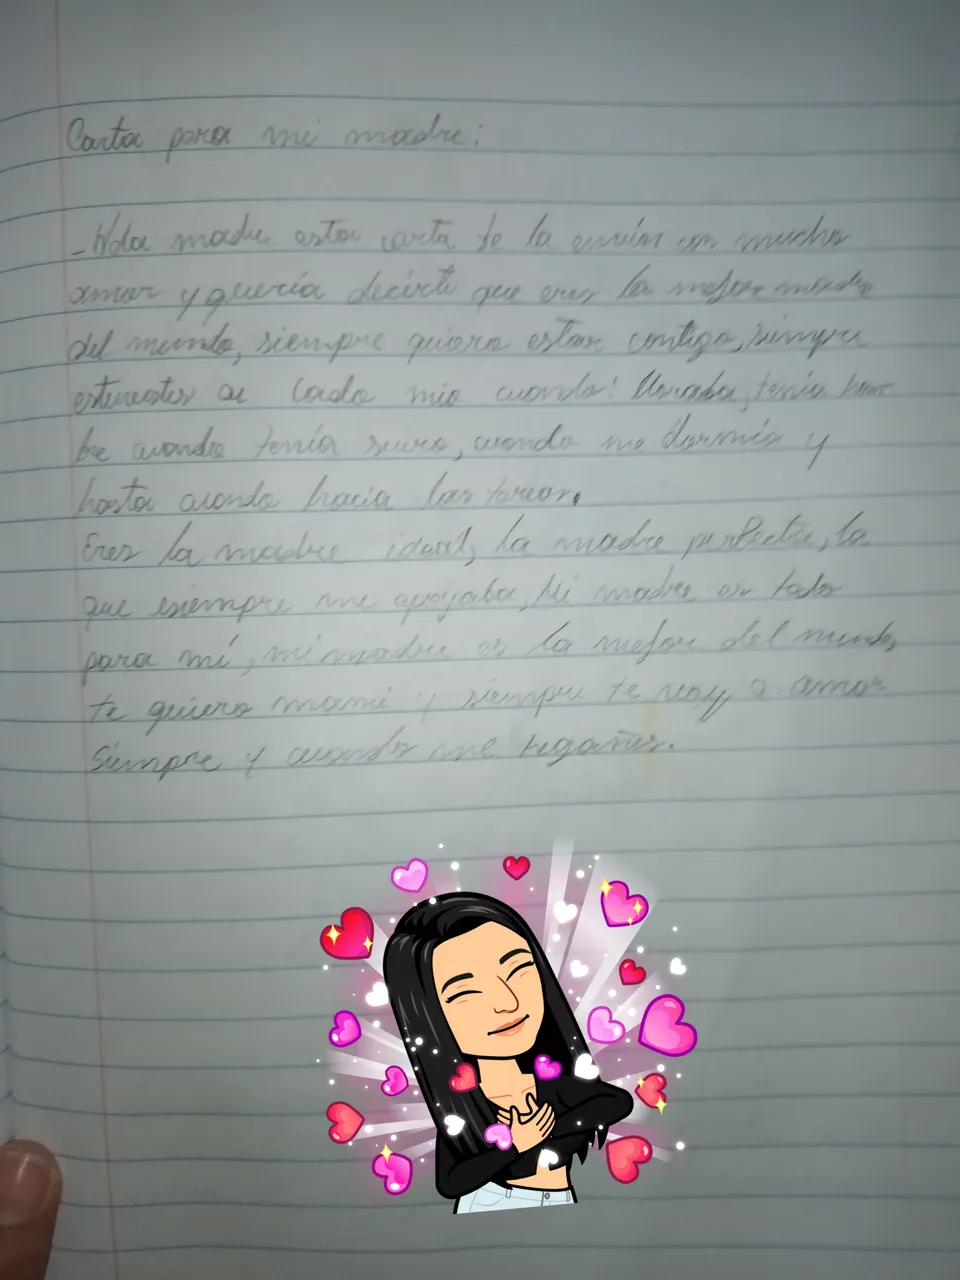 Carta para mi madre:
-Hola madre esta carta te la envío con mucho
amor y quería decirte que eres la mejor madre
del mundo, siempre quiero estar contigo, siempre
estuvestes al lado mio cuando: lloraba, tenía ham
bre cuando tenía sueño, cuando me dormía y
hasta cuando hacia las tareas.
Eres la madre ideal, la madre perfecta, la
que siempre me apoyaba, Mi madre es todo
para mí, mi madre es la mejor del mundo,
te quiero mami y siempre te voy a amar
siempre y cuando me regañes.